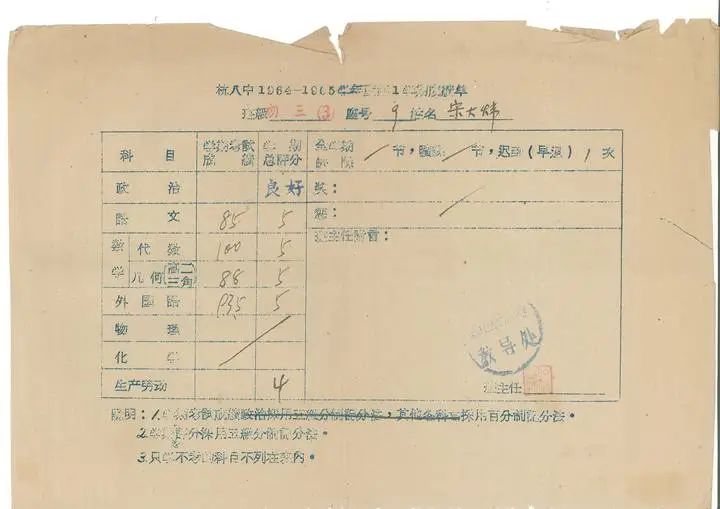 杭八中1964-1965学年 1学期成绩单
班级 初三(3) 座号 9 姓名 宋大炜
科目 学期考试成绩 学期总评分 节, 节,迟到(早退) 1 次
政治 良好 奖:
语文 85 5 惩:
数学 代数 100 5 班主任附言:
几何(高二三角) 88 5
外国语 93.5 5
物理
化学
生产劳动 4
教导处
班主任
说明:1. 学期考试成绩政治採用五级分制记分法,其他各科採用百分制记分法。
2. 学期评分採用五级分制记分法。
3. 只学不考的科目不列在表内。